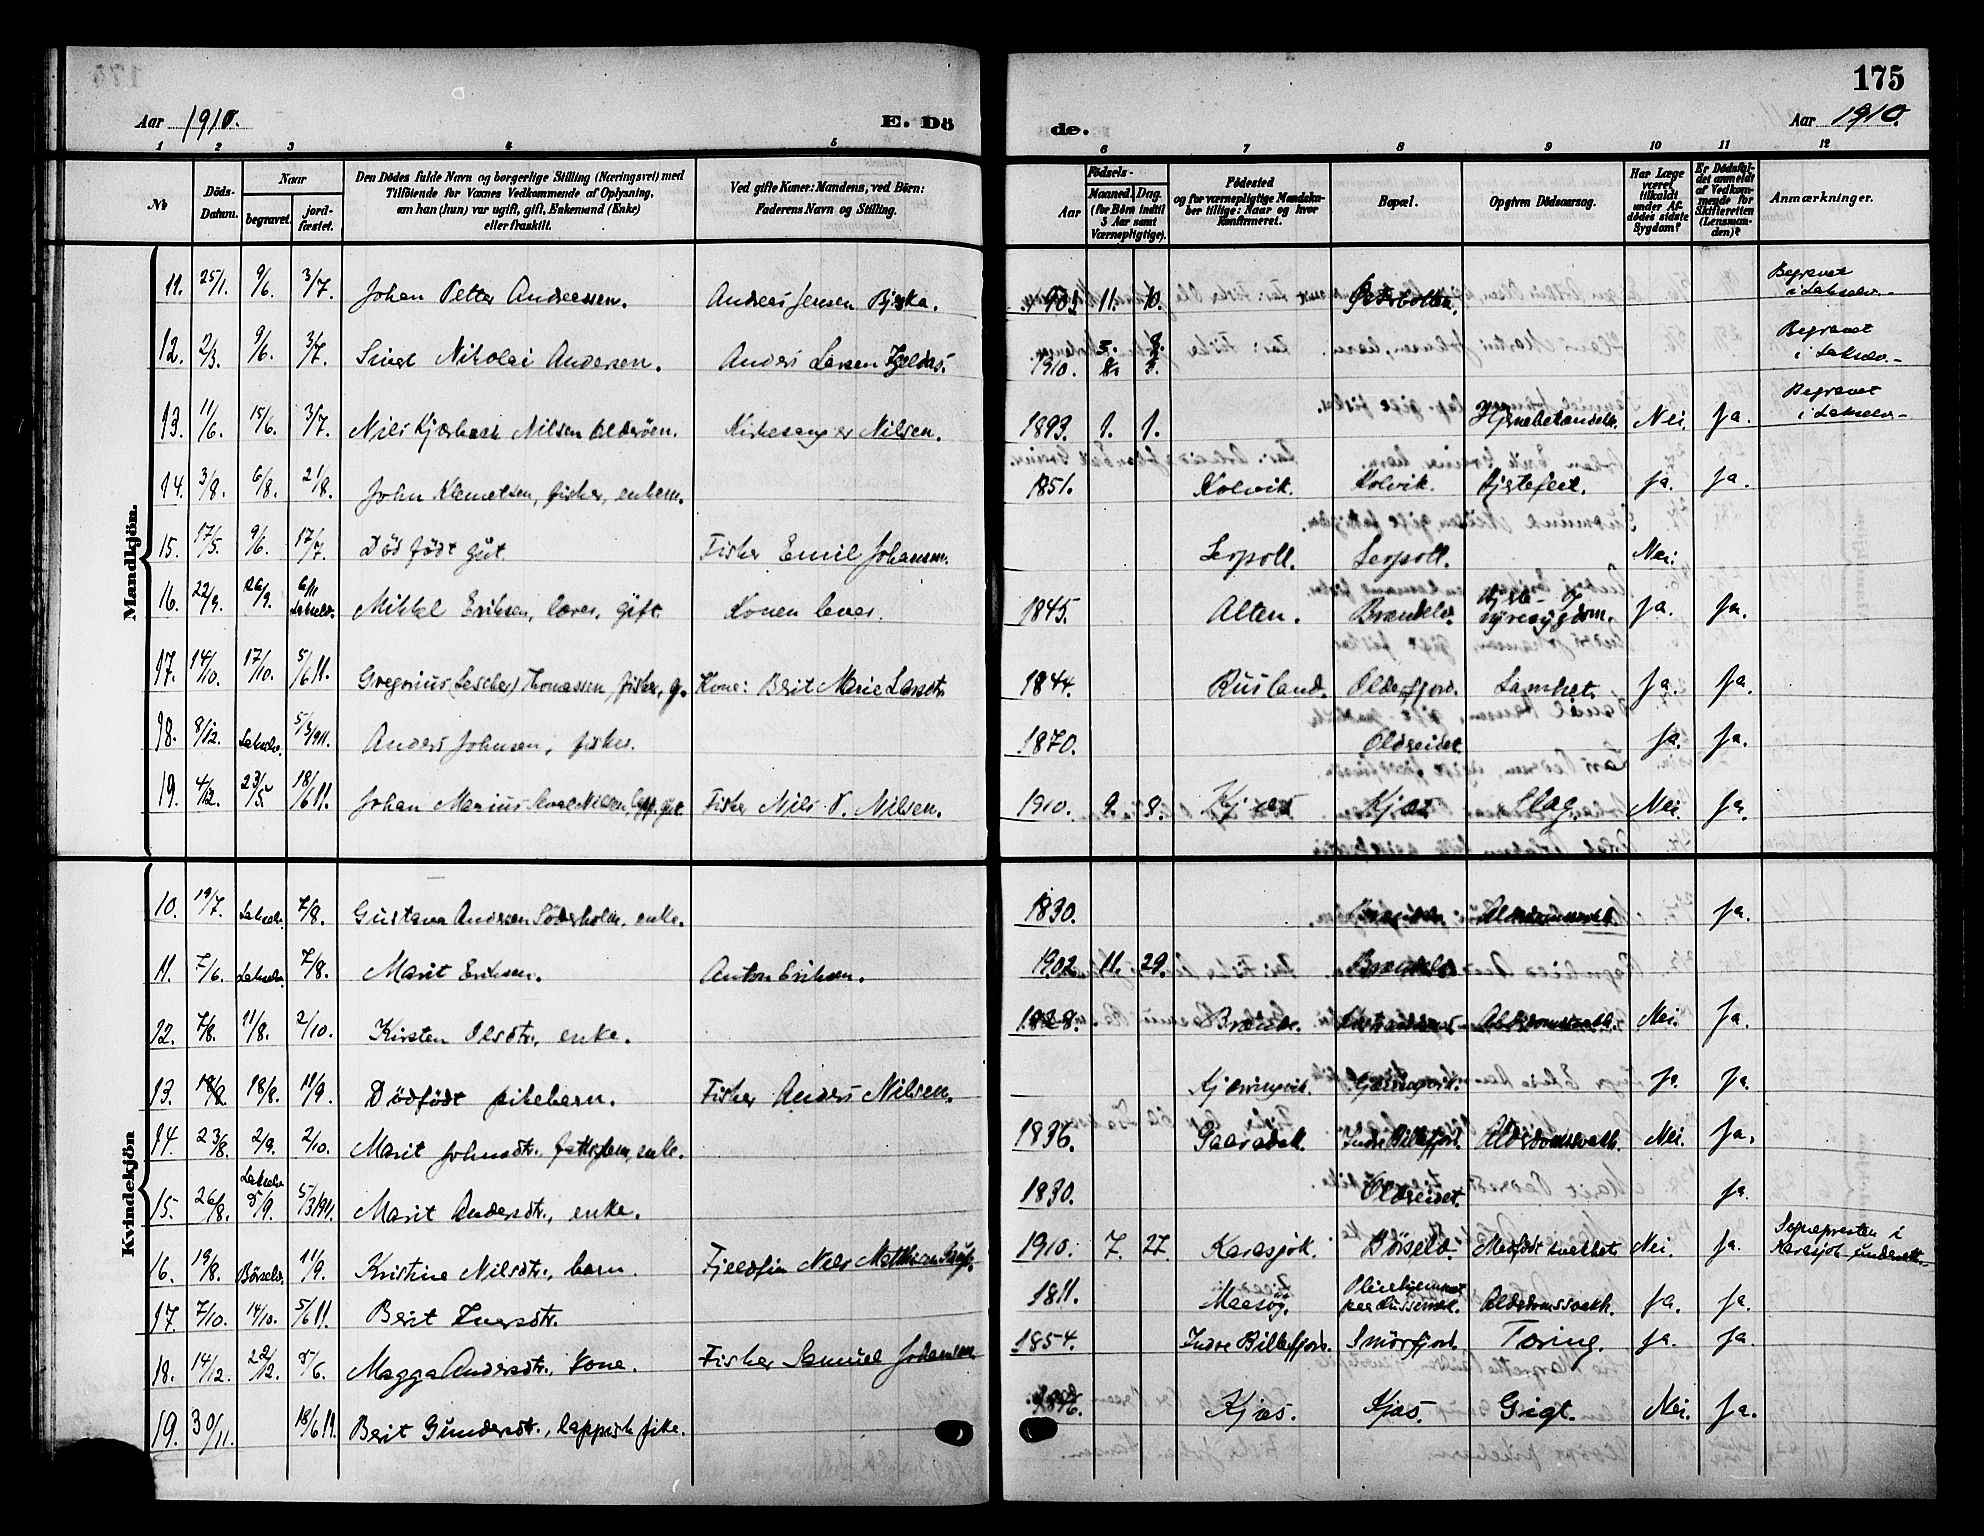 175
Aar 1910.
E. Dö
de.
Aar 1910.
1 2 3 4 5 6 7 8 9 10 11 12
No
Döds-Datum.
Naar
begravet.
jord-fæstet.
Den Dödes fulde Navn og borgerlige Stilling (Næringsvei) med
Tilföiende for Voxnes Vedkommende af Oplysning,
om han (hun) var ugift, gift, Enkemand (Enke)
eller fraskilt.
Ved gifte Koner: Mandens, ved Börn:
Faderens Navn og Stilling.
Födsels-
Aar
Maaned. Dag.
(for Börn indtil
5 Aar samt
Værnepligtige).
Födested
og for værnepligtige Mandska-
ber tillige: Naar og hvor
Konfirmeret.
Bopæl.
Opgiven Dödsaarsag.
Har Læge
været
tilkaldt
under Af-
dödes sidste
Sygdom?
Er Dödsfal-
det anmeldt
af Vedkom-
mende for
Skifteretten
(Lensman-
den)?
Anmærkninger.
Mandkjön.
11. 25/1. 9/6. 3/7. Johan Petter Andreassen. Andreas Jensen 1901 11. 10. Begravet i Lakselv.
12. 2/3. 9/6. 3/7. Nikolai Andersen. Anders Larsen 1910. Begravet i Lakselv.
13. 11/6. 15/6. 3/7. Nils Nilsen Olderöen. Kirkesanger Nilsen. 1893. 1. 1. Nei. Ja. Begravet i Lakselv.
14. 3/8. 6/8. 21/8. John Klemetsen, fisker, enkem. 1851. Kolvik. Kolvik. Hjertefeil. Ja. Ja.
15. 17/5. 9/6. 17/7. Död födt gut. Fisker Emil Johansen. Leirpoll. Leirpoll. Nei.
16. 22/9. 26/9. 6/11 Lakselv. Mikkel Eriksen, gift. Konen lever. 1845. Alten. Brendelv. Hjerte- og nyresygdom. Ja. Ja.
17. 14/10. 17/10. 5/6 11. Gregorius Thomassen fisker, g. Kone: Berit Marie Larsdtr. 1844. Rusland. Olderfjord. Lamhet. Ja. Ja.
18. 8/12. Lakselv. 5/3 1911. Anders Johnsen, fisker. 1870. Oldereidet. Ja. Ja.
19. 4/12. 23/5. 18/6 11. Johan Marius Nilsen, lapp. gut. Fisker Nils P. Nilsen. 1910. 9. 8. Kjæs Kjæs Slag. Nei. Ja.
Kvindekjön
10. 19/7. Lakselv. 7/8. Gustava Andersen Söderholm, enke. 1830. Alderdomssvakh. Ja.
11. 7/6. Lakselv. 7/8. Marit Eriksen. Anton Eriksen. 1902 11. 29. Brendelv
12. 7/8. 11/8. 2/10. Kirsten Olsdtr., enke. 1828. Alderdomssvakh. Nei. Ja.
13. 18/8. 18/8. 11/9. Dödfödt pikebarn. Fisker Anders Nilsen. Kjerringvik. Kjerringvik. Ja. Ja.
14. 23/8. 2/9. 2/10. Marit Johnsdtr. fattiglem, enke. 1836. Indre Billefjord. Alderdomssvakh. Nei. Ja.
15. 26/8. Lakselv 5/9. 5/3 1911. Marit Andersdtr., enke. 1830. Oldereidet. Ja.
16. 19/8. Börselv. 11/9. Kristine Nilsdtr., barn. Fjeldfin Nils Mathisen 1910. 7. 27. Karasjok. Börselv. Medfödt svakhet Nei. Ja. Sognepresten i Karasjok underrett.
17. 7/10. 14/10. 5/6 11. Berit Iversdtr. 1811. Maasöy. Pleiehjemmet paa Alderdomssvakh. Ja. Ja.
18. 14/12. 22/12. 5/6. Magga Andersdtr., kone. Fisker Samuel Johansen 1854. Indre Billefjord. Smörfjord. Tæring. Ja. Ja.
19. 30/11. 18/6 11. Berit Gundersdtr., lappisk pike. Kjæs. Kjæs. Gigt. Nei. Ja.